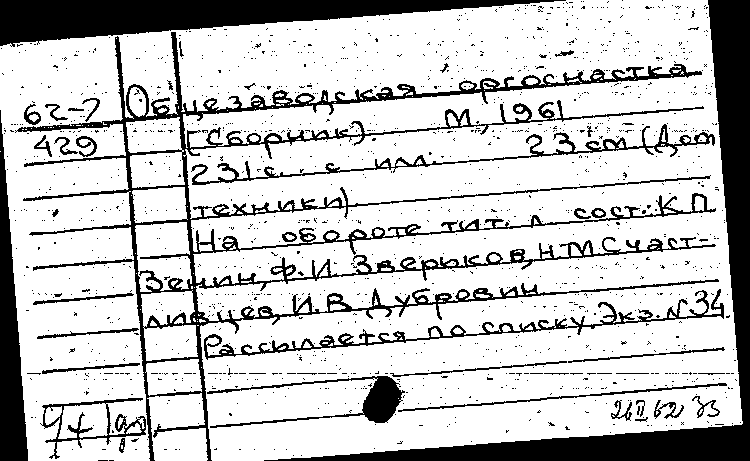 62-7
429
Общезаводская оргоснастка
[Сборник]. М., 1961
231с. с илл. 23 cm (Дом
техники)
На обороте тит. л сост.: К П
Зенин, Ф.И Зверьков, Н М Счаст-
ливцев, И.В Дубровин
Рассылается по списку. Экз. №34
26 II 62